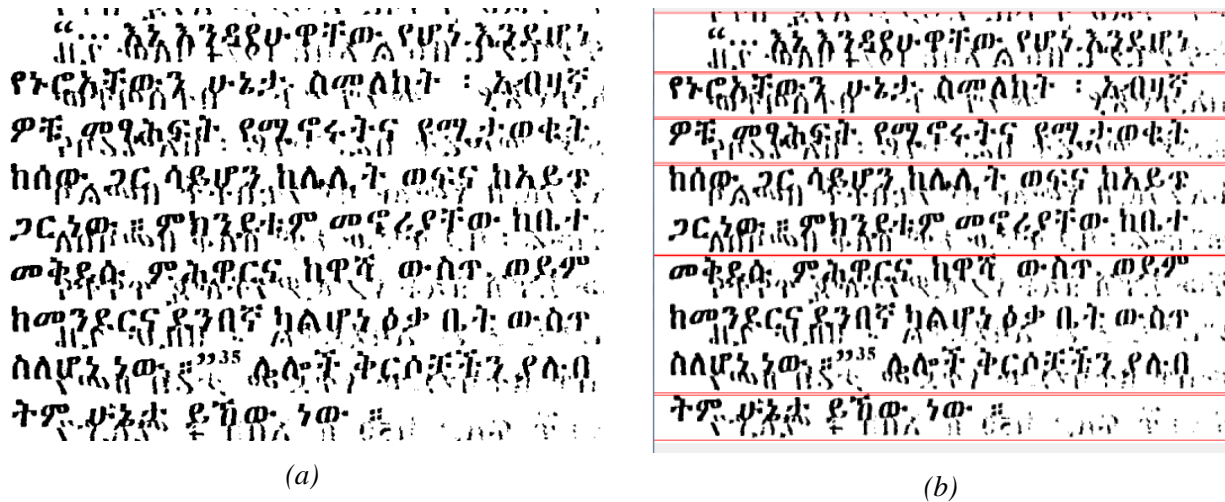 “... እኔ እንዳየሁዋቸው የሆነ እንደሆነ
የኑሮአቸውን ሁኔታ ስመለከት ፡ አብዛኛ
ዎቹ መጻሕፍት የሚኖሩትና የሚታወቁት
ከሰው ጋር ሳይሆን ከሌሊት ወፍና ከአይጥ
ጋር ነው ። ምክንያቱም መኖሪያቸው ከቤተ
መቅደሱ ምሕዋርና ከዋሻ ውስጥ ወይም
ከመንደርና ደንበኛ ካልሆነ ዕቃ ቤት ውስጥ
ስለሆነ ነው ።”35 ሌሎች ቅርሶቻችን ያሉበ
ትም ሁኔታ ይኸው ነው ።
(a)
“... እኔ እንዳየሁዋቸው የሆነ እንደሆነ
የኑሮአቸውን ሁኔታ ስመለከት ፡ አብዛኛ
ዎቹ መጻሕፍት የሚኖሩትና የሚታወቁት
ከሰው ጋር ሳይሆን ከሌሊት ወፍና ከአይጥ
ጋር ነው ። ምክንያቱም መኖሪያቸው ከቤተ
መቅደሱ ምሕዋርና ከዋሻ ውስጥ ወይም
ከመንደርና ደንበኛ ካልሆነ ዕቃ ቤት ውስጥ
ስለሆነ ነው ።”35 ሌሎች ቅርሶቻችን ያሉበ
ትም ሁኔታ ይኸው ነው ።
(b)